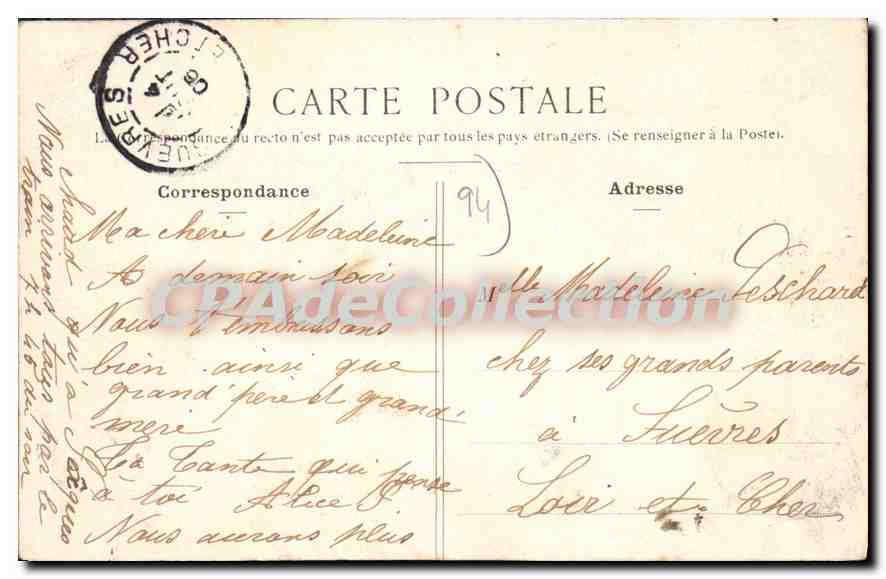 CARTE POSTALE
La Correspondance au recto n'est pas acceptée par tous les pays étrangers. (Se renseigner à la Poste).
Correspondance
Ma chère Madeleine
A demain soir
Nous t'embrassons
bien ainsi que
grand'père et grand'
mère
Ta Tante qui pense
à toi Alice
Nous aurons plus
chaud qu'à
Nous arrivons tous par le
train 7h 46 du soir
Adresse
Melle Madeleine Peschard
chez ses grands parents
à Suèvres
Loir et Cher
94
SUEVRES
ET CHER
06
CPAdeCollection.com